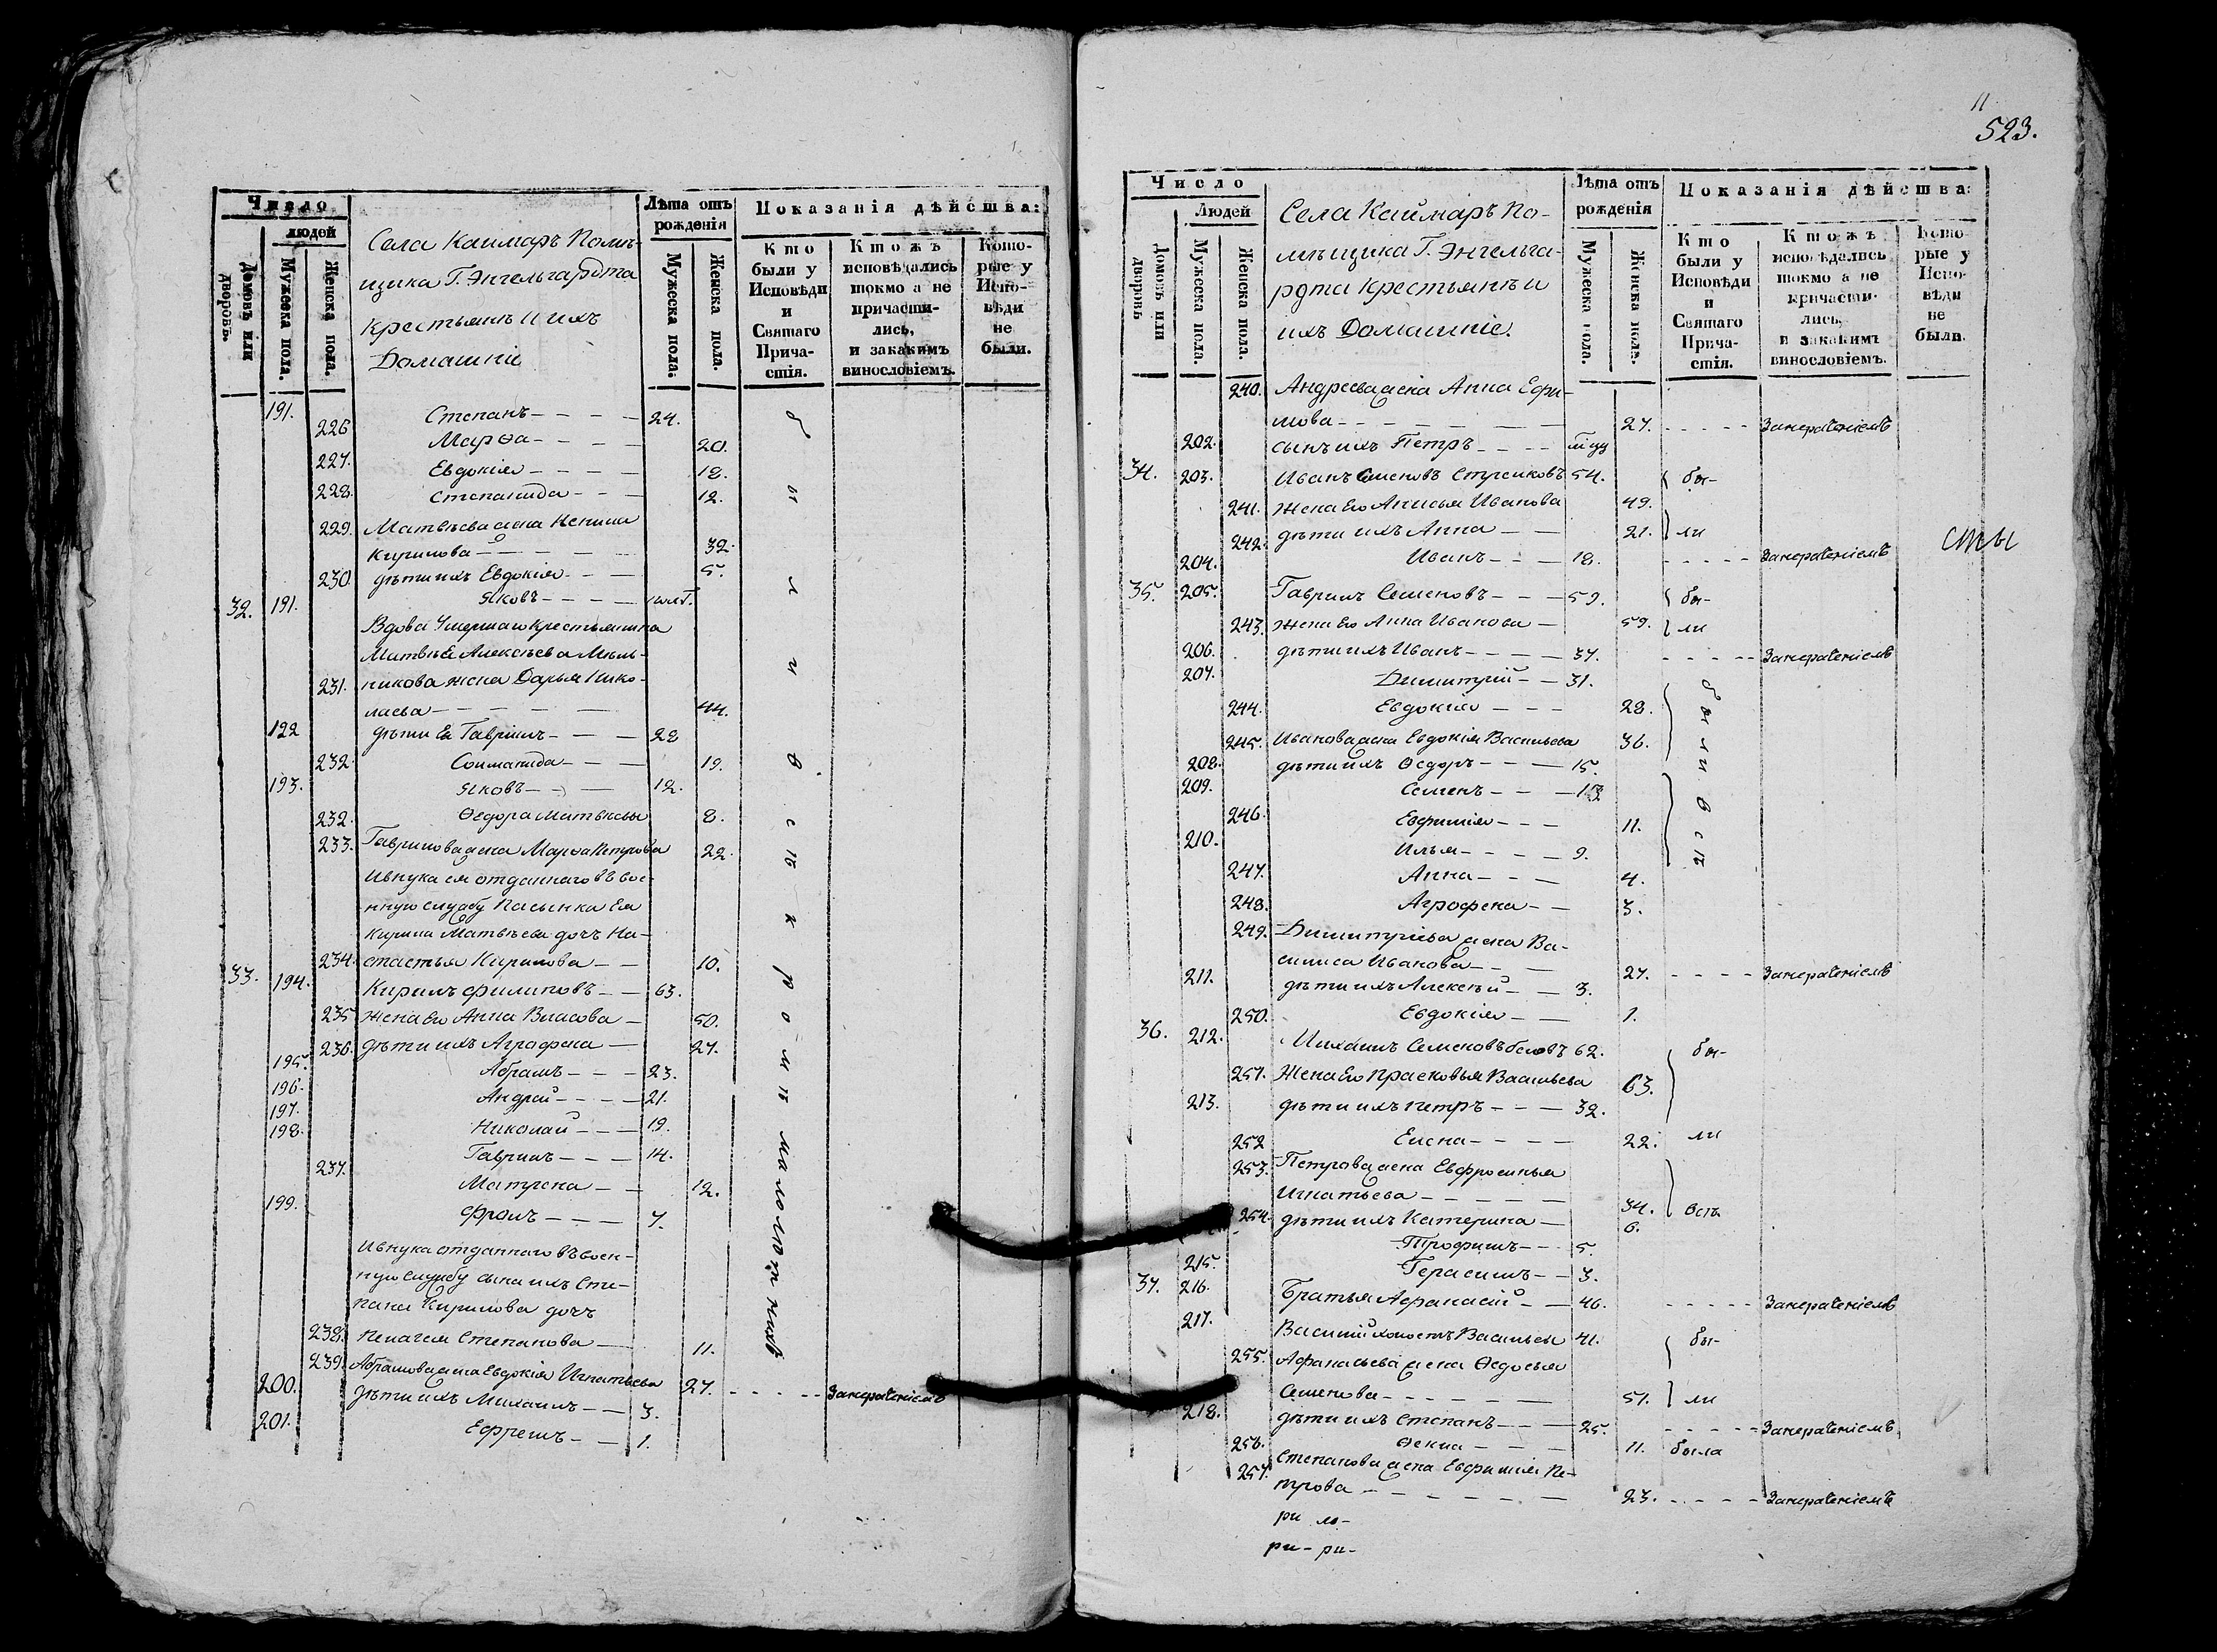 Число
людей
Домовъ или дворовъ.
Мужеска пола.
Женска пола.
Села Каимаръ Помѣ-
щика Г. Энгельгардта
крестьянъ и ихъ
Домашніе
Лѣта отъ рожденія
Мужеска пола.
Женска пола.
Показанія дѣйства:
Кто были у Исповѣди и Святаго Прича-стія.
Ктожъ исповѣдались токмо а не причасти-лись, и закакимъ винословіемъ.
Кото-рые у Испо-вѣди не были.
191. Степанъ 24.
226 Марѳа 20.
227. Евдокія 18.
228. Степанида 12.
229. Матвѣева жена Ксенія
Кирилова 32.
230 дѣти ихъ Евдокія 5.
32. 191. Яковъ полг.
Вдова Умершаго крестьянина
Матвѣя Алексѣева Мель-
231. никова жена Дарья Нико-
лаева 44.
192 дѣти Ея Гаврилъ 28
232. Соломанида 19.
193. Яковъ 12.
232. Ѳедора Матвѣевы 8.
233. Гаврилова жена Марѳа Петрова 22.
И внука ея отданнаго въ вое-
нную службу пасынка Ея
Кирила Матвѣева дочь На-
234. стасья Кирилова 10.
33. 194. Кирилъ Филиповъ 63.
235 жена Его Анна Власова 50.
236. дѣти ихъ Аграфена 27.
195. Абрамъ 23.
196. Андрей 21.
197. Николай 19.
198. Гаврилъ 14.
237. Матрена 12.
199. Фролъ 7.
И внука отданнаго въ воен-
ную службу сына ихъ Сте-
пана Кирилова дочь
238. Пелагея Степанова 11.
239. Абрамова жена Евдокія Игнатьева 27. Занерадѣніемъ
200. дѣти ихъ Михаилъ 3.
201. Ефремъ 1.
были всѣ кромѣ малолѣтнихъ
11
523.
Число
Людей
Домовъ или дворовъ
Мужеска пола.
Женска пола.
Села Каймаръ По-
мѣщика Г. Энгельга-
рдта Крестьянъ и
ихъ Домашніе.
Лѣта отъ рожденія
Мужеска пола.
Женска пола.
Показанія дѣйства:
Кто были у Исповѣди и Святаго Прича-стія.
Ктожъ исповѣдались токмо а не причасти-лись, и закакимъ винословіемъ.
Кото-рые у Испо-вѣди не были.
240. Андреева жена Анна Ефи-
мова 27. Занерадѣніемъ
202. сынъ ихъ Петръ
34. 203. Иванъ Семеновъ 54. бы-
241. жена Его Анисья Иванова 49.
242. дѣти ихъ Анна 21. ли
204. Иванъ 18. Занерадѣніемъ
35. 205. Гаврилъ Семеновъ 59. бы-
243. жена Его Анна Иванова 59. ли
206. дѣти ихъ Иванъ 37. Занерадѣніемъ
207. Димитрій 31.
244. Евдокія 28.
245. Иванова жена Евдокія Васильева 36.
208. дѣти ихъ Ѳедоръ 15.
209. Семенъ 13
246. Евфимія 11.
210. Илья 9.
247. Анна 4.
248. Аграфена 3.
были всѣ
249. Димитріева жена Ва-
силиса Иванова 27. Занерадѣніемъ
211. дѣти ихъ Алексѣй 3.
250. Евдокія 1.
36. 212. Михаилъ Семеновъ Беловъ 62. бы-
251. Жена Его Прасковья Васильева 63.
213. дѣти ихъ Петръ 32.
252 Елена 22. ли
253. Петрова жена Евфросинья
Игнатьева 34. всѣ
254. дѣти ихъ Катерина 6.
Трофимъ 5.
215. Герасимъ 3.
37. 216. Братья Афанасій 46. Занерадѣніемъ
217. Василий холостъ Васильевы 41. бы-
255. Афанасьева жена Ѳедосья
Семенова 51. ли
218. дѣти ихъ Степанъ 25. Занерадѣніемъ
256. Ѳекла 11. была
257. Степанова жена Евфимія Пе-
трова 23. Занерадѣніемъ